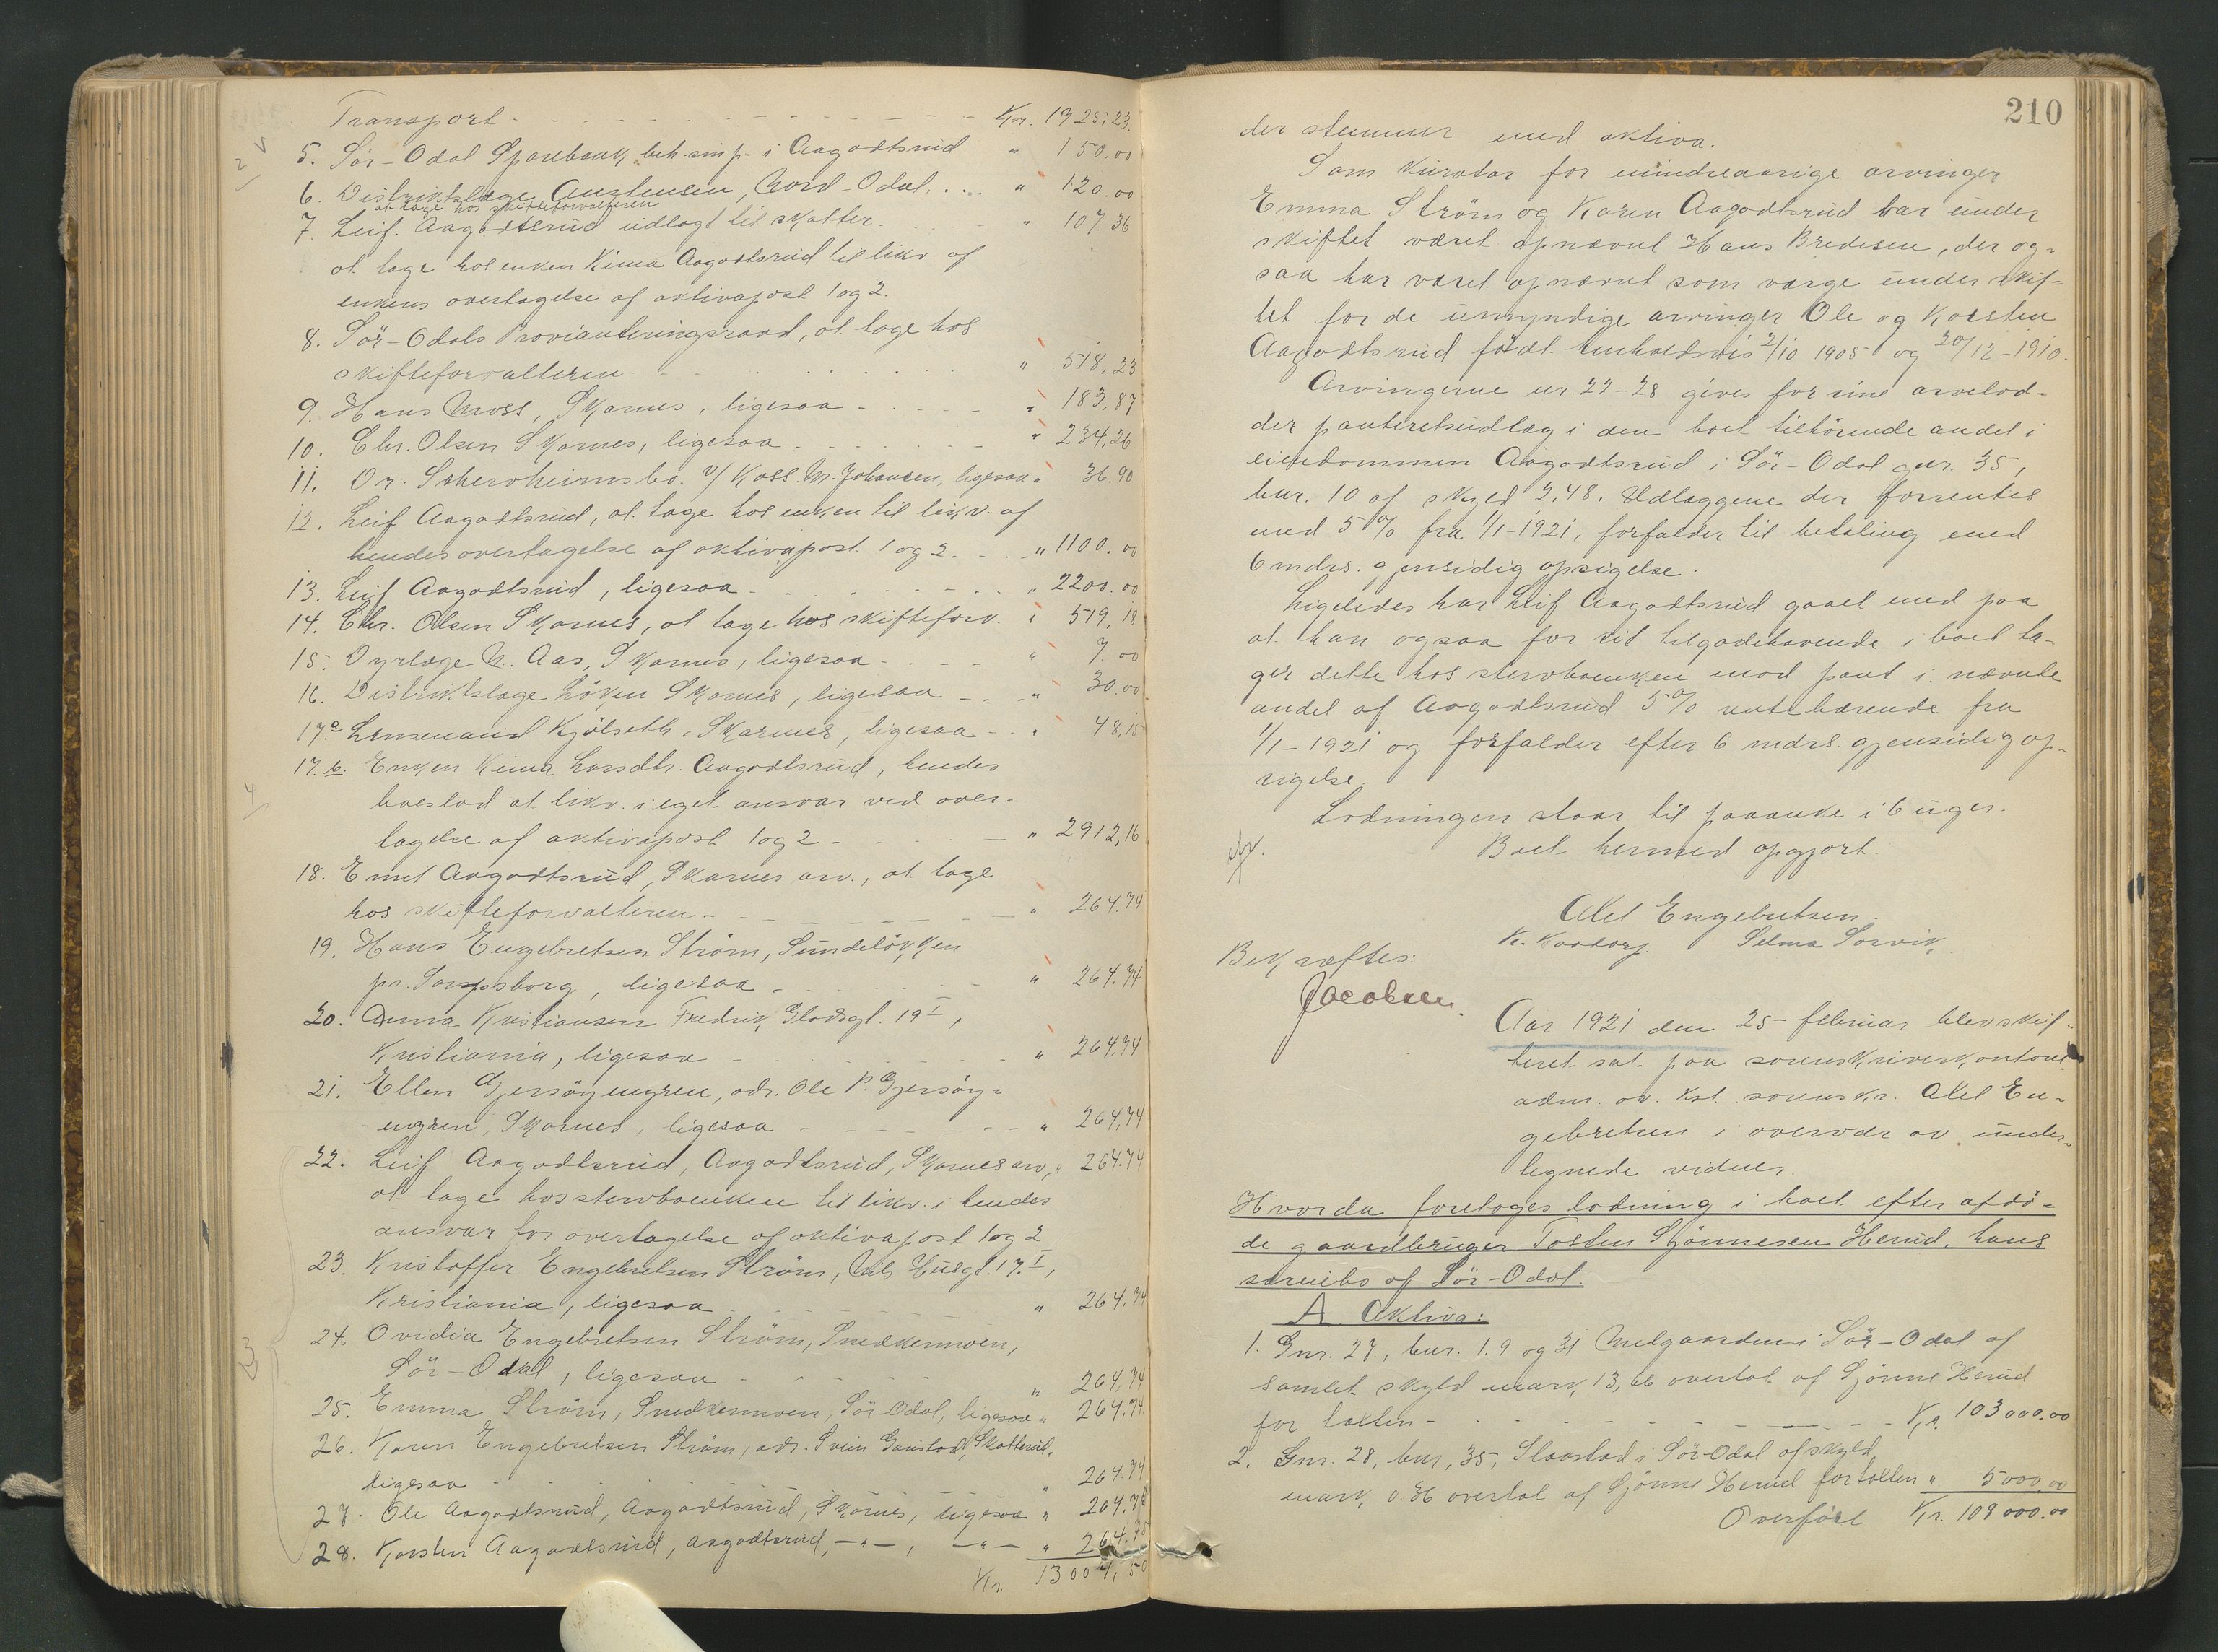 Transport - - - Kr. 1925,23
5. Sör-Odal Sparebank, beh. imp. i Aagodtsrud " 150.00
6. Distriktslæge Austensen, Nord-Odal, .... " 120.00
at tage hos skifteforvalteren
7. Leif Aagodtsrud utlagt til skatter. " 107.36
at tage hos enken Kima Aagodtsrud til likv. af
enkens overtagelse af aktivapost 1 og 2.
8. Sör-Odals Provianteringsraad, at tage hos
skifteforvalteren - " 518,23
9. Hans Moss, Skarnes, ligesaa - " 183,87
10. Chr. Olsen Skarnes, ligesaa - " 234.26
11. Dr. bo. v/ M. Johansen, ligesaa " 36.90
12. Leif Aagodtsrud, at tage hos enken til likv. af
hendes overtagelse af aktivapost 1 og 2. - " 1100.00
13. Leif Aagodtsrud, ligesaa - " 2200.00
14. Chr. Olsen Skarnes, at tage hos skifteforv. " 519,18
15. Dyrlæge N. Aas, Skarnes, ligesaa - " 7.00
16. Distriktslæge Löken Skarnes, ligesaa - " 30.00
17a Lensmand Kjölseth, Skarnes, ligesaa - " 48,15
17.b. Enken Kima Larsdtr. Aagodtsrud, hendes
boeslod at likv. i eget ansvar ved over-
tagelse af aktivapost 1 og 2 - " 2912,16
18. Emil Aagodtsrud, Skarnes arv., at tage
hos skifteforvalteren - " 264.74
19. Hans Engebretsen Ström, Sundelökken
pr. Sarpsborg, ligesaa - " 264.74
20. Anna Kristiansen Fredrik Gladsgt. 19 I,
Kristiania, ligesaa - " 264.74
21. Ellen Gjersöyengren, adr. Ole P. Gjersöy-
engren, Skarnes, ligesaa - " 264,74
22. Leif Aagodtsrud, Aagodtsrud, Skarnes arv, " 264.74
at tage hos stervboenken til likv. i hendes
ansvar for overtagelse af aktivapost 1 og 2
23. Kristoffer Engebretsen Ström, Nils Husgt. 17. I,
Kristiania, ligesaa - " 264.74
24. Ovidia Engebretsen Ström, Smedkermoen,
Sör-Odal, ligesaa - " 264,74
25. Emma Ström, Smedkermoen, Sör-Odal, ligesaa " 264.74
26. Karen Engebretsen Ström, adr. Svein Skotterud,
ligesaa - " 264.74
27. Ole Aagodtsrud, Aagodtsrud, Skarnes, ligesaa " 264.74
28. Korsten Aagodtsrud, Aagodtsrud, -"-, -"- " 264.75
Kr. 13004,50
210
der stemmer med aktiva.
Som kurator for mindreaarige arvinger
Emma Ström og Karen Aagodtsrud har under
skiftet været opnævnt Hans Bredesen, der og-
saa har været opnævnt som værge under skif-
tet for de umyndige arvinger Ole og Korsten
Aagodtsrud födt henholdsvis 2/10 1905 og 20/12-1910.
Arvingerne nr 22-28 gives for sine arvelod-
der panteretsudlæg i den boet tilhörende andel i
eiendommen Aagodtsrud i Sör-Odal gnr. 35,
bnr. 10 af skyld 2.48. Udlæggene der forrentes
med 5% fra 1/1-1921, forfalder til betaling med
6 mdrs. gjensidig opsigelse.
Ligeledes har Leif Aagodtsrud gaaet med paa
at han ogsaa for sit tilgodehavende i boet ta-
ger dette hos stervboenken mod pant i nævnte
andel af Aagodtsrud 5% rentebærende fra
1/1-1921 og forfalder efter 6 mdrs. gjensidig op-
sigelse.
Lodningen staar til paaanke i 6 uger.
Boet hermed opgjort.
Axel Engebretsen.
Selma Sorvik
Bekræftes:
Jacobsen.
Aar 1921 den 25 februar blev skif-
teret sat paa sorenskriverkontoret
adm. av. kst. sorenskr. Axel En-
gebretsen i overvær av under-
tegnede vidner.
Hvorda foretoges lodning i boet efter afdö-
de gaardbruger Tosten Sjönnesen Herud, hans
særuibo af Sör-Odal.
A Aktiva:
1. Gnr. 27, bnr. 1.9 og 31 Melgaarden i Sör-Odal af
samlet skyld mark 13,66 overtat af Sjönne Herud
for taxten - Kr. 103000.00
2. Gnr. 28, bnr. 35, Slaastad i Sör-Odal af skyld
mark 0.36 overtat af Sjönne Herud for taxten " 5000.00
Overfört Kr. 108000.00